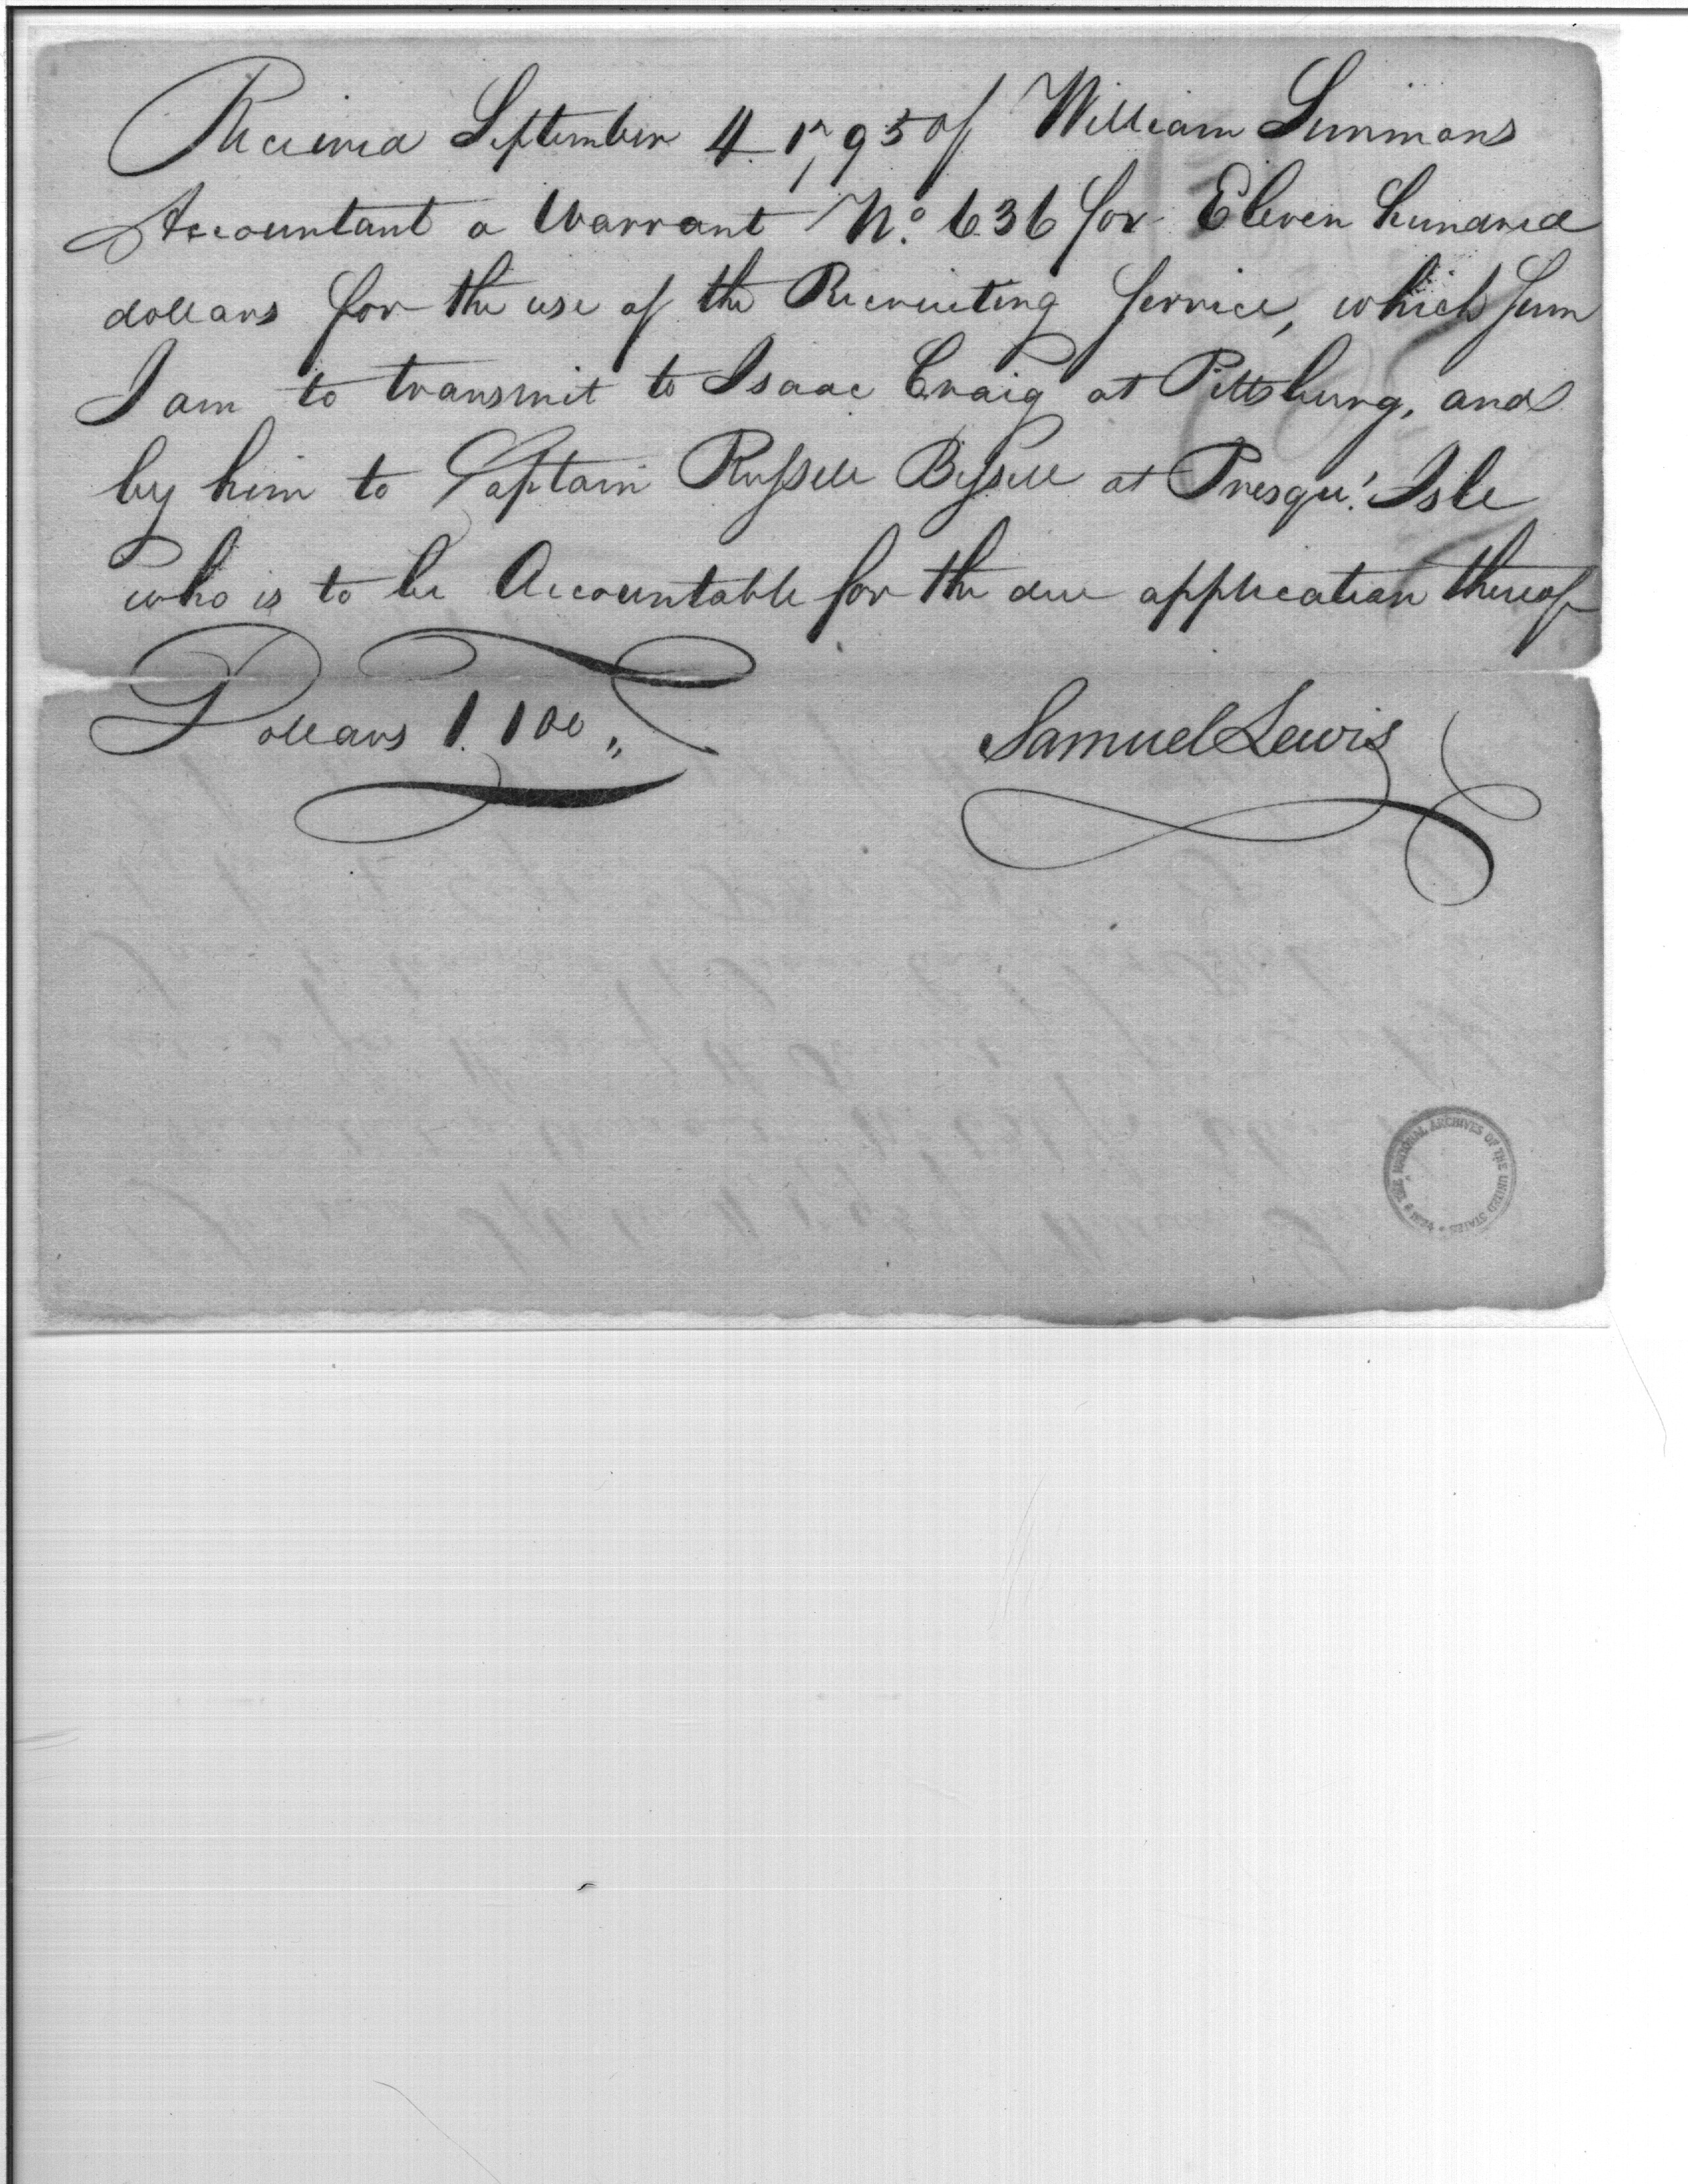 Received September 4. 1795 of William Simmons
Accountant a Warrant No. 636 for Eleven hundred
dollars for the use of the Recruiting Service, which Sum
I am to transmit to Isaac Craig at Pittsburg, and
by him to Captain Russell Bissell at Presqu' Isle
who is to be Accountable for the due application thereof
Dollars 1.100,,
Samuel Lewis
THE NATIONAL ARCHIVES OF THE UNITED STATES * 1934 *